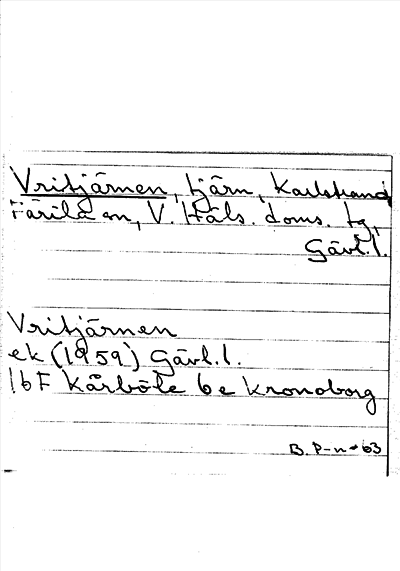 Vritjärnen, tjärn, Karlstrand
Färila sn, V. Häls. doms. tg,
Gävl.l.
Vritjärnen
ek (1959) Gävl.l.
16F Kårböle 6e Kronoborg
B. P-n -63